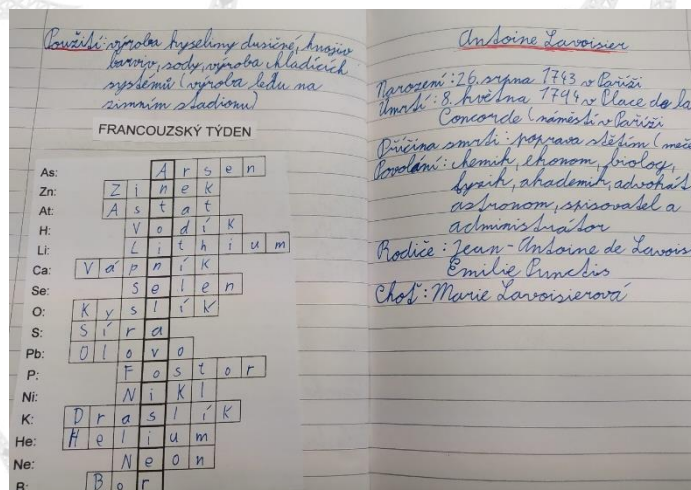 Použití: výroba kyseliny dusičné, hnojiv
barviv, sody, výroba chladících
systémů (výroba ledu na
zimním stadionu)
FRANCOUZSKÝ TÝDEN
As: Arsen
Zn: Zinek
At: Astat
H: Vodík
Li: Lithium
Ca: Vápník
Se: Selen
O: Kyslík
S: Síra
Pb: Olovo
P: Fosfor
Ni: Nikl
K: Draslík
He: Helium
Ne: Neon
B: Bor
Antoine Lavoisier
Narození: 26. srpna 1743 v Paříži
Úmrtí: 8. května 1794 v Place de la
Concorde (náměstí v Paříži
Příčina smrti: poprava stětím (meče
Povolání: chemik, ekonom, biolog,
fyzik, akademik, advokát
astronom, spisovatel a
administrátor
Rodiče: Jean-Antoine de Lavois
Emilie Punctis
Choť: Marie Lavoisierová